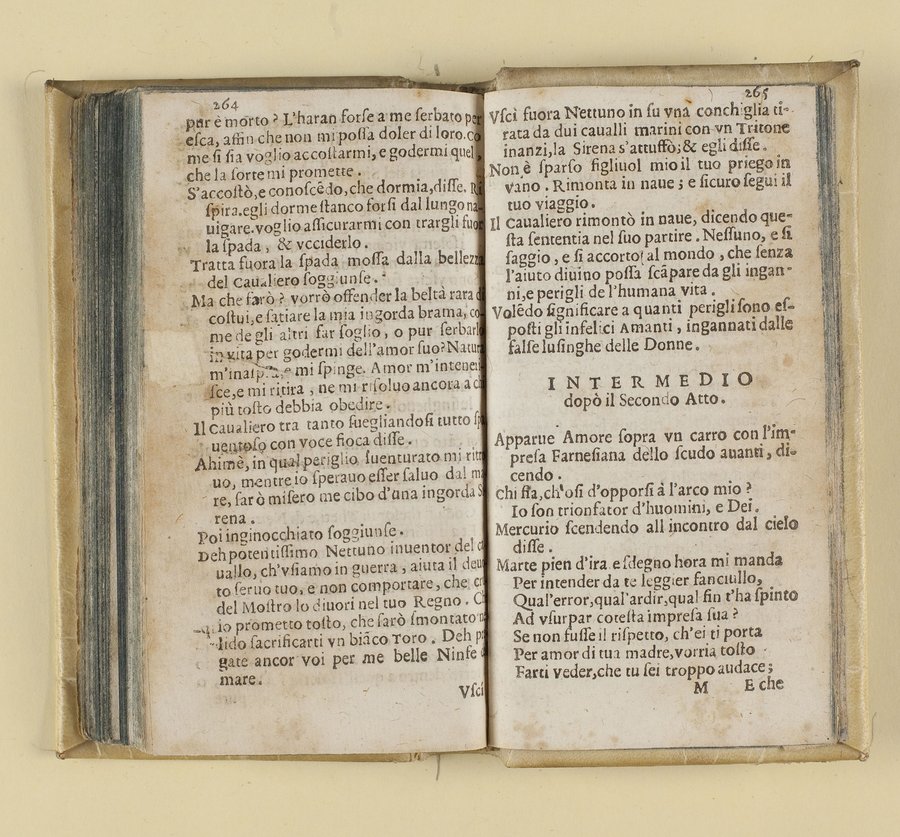 264
pur è morto? L'haran forse a me serbato per
esca, affin che non mi possa doler di loro. co
me si sia voglio accostarmi, e godermi quel,
che la sorte mi promette.
S'accostò, e conoscẽdo, che dormia, disse. Ri
spira. egli dorme stanco forsi dal lungo na-
uigare. voglio assicurarmi con trargli fuor
la spada, & vcciderlo.
Tratta fuora la spada mossa dalla bellezza
del caualiero soggiunse.
Ma che farò? vorrò offender la beltà rara di
costui, e satiare la mia ingorda brama, co-
me de gli altri far soglio, o pur serbarlo
in vita per godermi dell'amor suo? Natura
e mi spinge. Amor m'inteneri
sce, e mi ritira, ne mi risoluo ancora a ch
più tosto debbia obedire.
Il caualiero tra tanto suegliandosi tutto spa
uentoso con voce fioca disse.
Ahimè, in qual periglio suenturato mi ritro
uo, mentre io speraua esser saluo dal ma
re, sarò misero me cibo d'una ingorda Si
rena.
Poi inginocchiato soggiunse.
Deh potentissimo Nettuno inuentor del ca
uallo, ch'vsiamo in guerra, aiuta il deuo
to seruo tuo, e non comportare, che
del Mostro lo diuori nel tuo Regno. Ch
io prometto tosto, che sarò smontato nel
lido sacrificarti vn biãco Toro. Deh pre
gate ancor voi per me belle Ninfe del
mare.
Vscì
265
Vscì fuora Nettuno in su vna conchiglia ti-
rata da dui caualli marini con vn Tritone
inanzi, la Sirena s'attuffò; & egli disse.
Non è sparso figliuol mio il tuo priego in
vano. Rimonta in naue; e sicuro segui il
tuo viaggio.
Il Caualiero rimontò in naue, dicendo que-
sta sententia nel suo partire. Nessuno, e si
saggio, e si accorto al mondo, che senza
l'aiuto diuino possa scãpare da gli ingan-
ni, e perigli de l'humana vita.
Volẽdo significare a quanti perigli sono es-
posti gli infelici Amanti, ingannati dalle
false lusinghe delle Donne.
INTERMEDIO
dopò il Secondo Atto.
Apparue Amore sopra vn carro con l'im-
presa Farnesiana dello scudo auanti, di-
cendo.
Chi sta, ch'osi d'opporsi à l'arco mio?
Io son trionfator d'huomini, e Dei.
Mercurio scendendo all incontro dal cielo
disse.
Marte pien d'ira e sdegno hora mi manda
Per intender da te leggier fanciullo,
Qual'error, qual'ardir, qual fin t'ha spinto
Ad vsurpar cotesta impresa sua?
Se non fusse il rispetto, ch'ei ti porta
Per amor di tua madre, vorria tosto
Farti veder, che tu sei troppo audace;
M E che